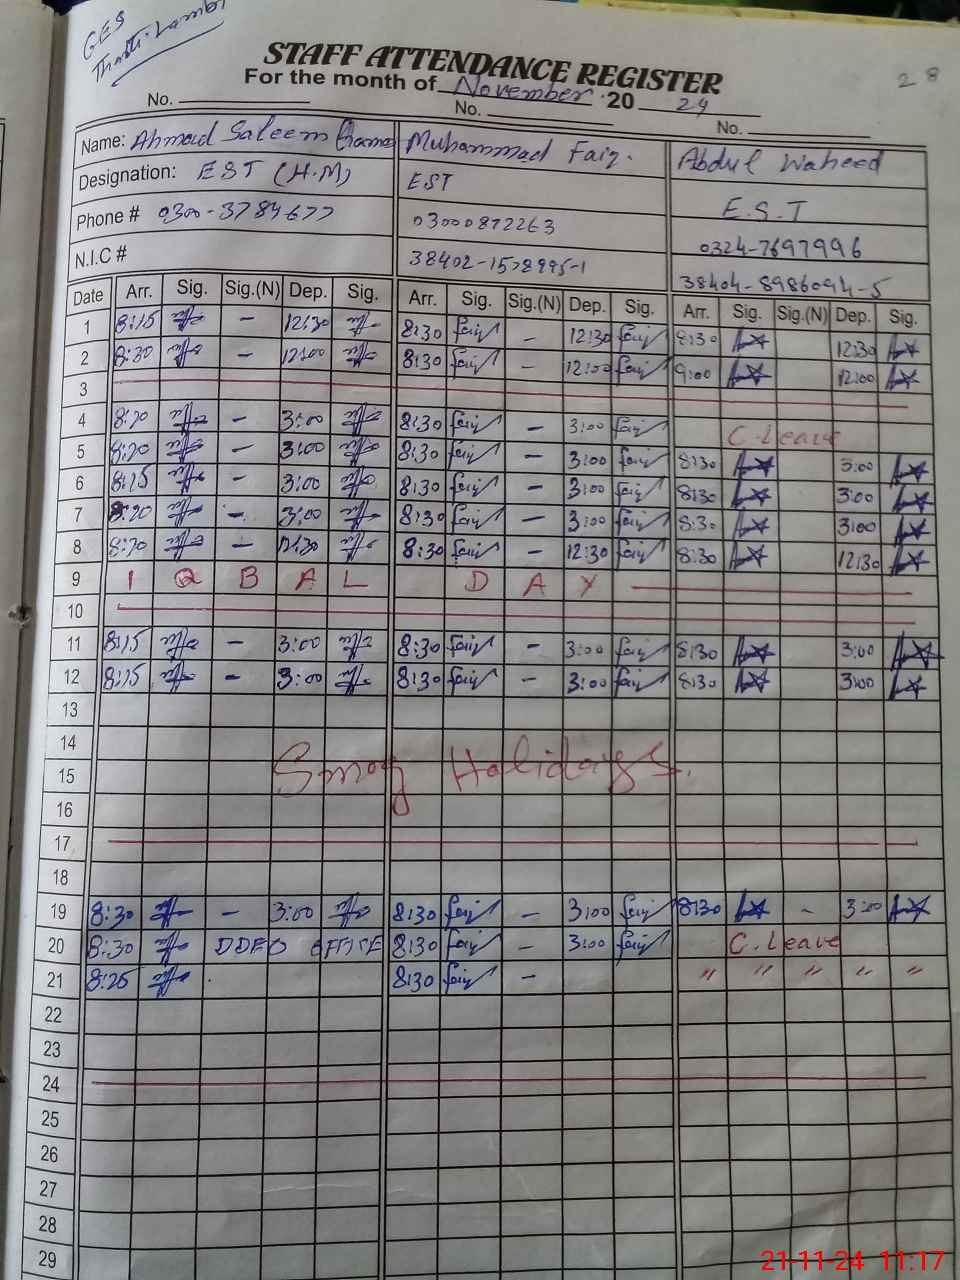 GES
28
STAFF ATTENDANCE REGISTER
For the month of November 2024
No. No. No.
Name: Ahmad Saleem Muhammad Faiz. Abdul Waheed
Designation: EST (H.M) EST E.S.T
Phone # 0300-3784677 03000872263 0324-7697996
N.I.C # 38404-8986094-5
Date Arr. Sig. Sig.(N) Dep. Sig. Arr. Sig. Sig.(N) Dep. Sig. Arr. Sig. Sig.(N) Dep. Sig.
1 8:15 - 12:30 8:30 faiz - 12:30 faiz 8:30 12:30
2 8:30 - 12:00 8:30 faiz - 12:00 faiz 9:00 12:00
3
4 8:20 - 3:00 8:30 faiz - 3:00 faiz C.Leave
5 8:20 - 3:00 8:30 faiz - 3:00 faiz 8:30 3:00
6 8:15 - 3:00 8:30 faiz - 3:00 faiz 8:30 3:00
7 8:20 - 3:00 8:30 faiz - 3:00 faiz 8:30 3:00
8 8:20 - 12:30 8:30 faiz - 12:30 faiz 8:30 12:30
9 I Q B A L D A Y
10
11 8:15 - 3:00 8:30 faiz - 3:00 faiz 8:30 3:00
12 8:15 - 3:00 8:30 faiz - 3:00 faiz 8:30 3:00
13
14
15 Smog Holidays.
16
17
18
19 8:30 - 3:00 8:30 faiz - 3:00 faiz 8:30 - 3:00
20 8:30 DDEO OFFICE 8:30 faiz - 3:00 faiz C.Leave
21 8:25 8:30 faiz - " " " " "
22
23
24
25
26
27
28
29
21-11-24 11:17